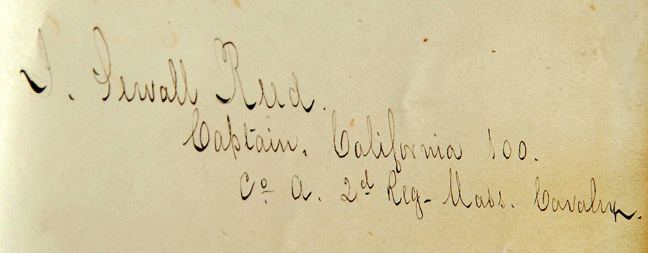 J. Sewall Reed.
Captain, California 100.
Co A. 2d Reg- Mass. Cavalry.